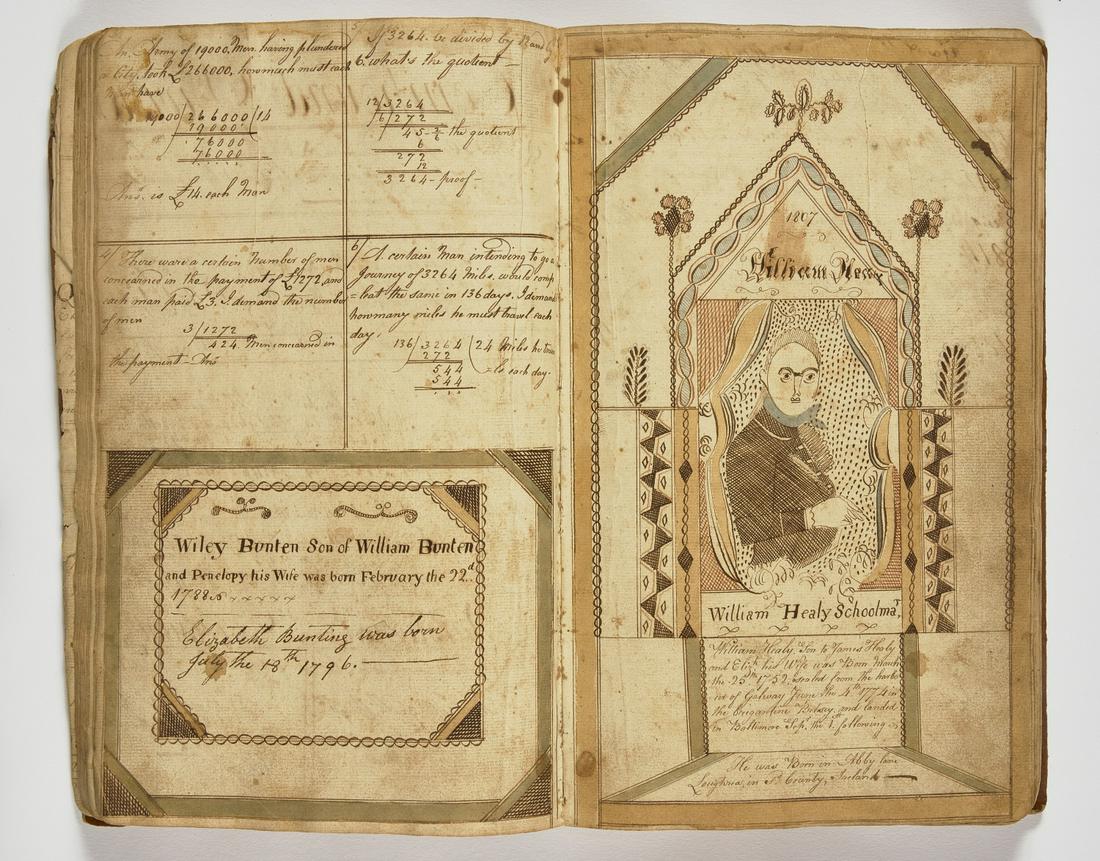 An Army of 19000. Men. having plundered
a City. took £266000. how much must each
Man have
19000/266000(14
19000
76000
76000
Ans. is £14. each Man
5 If 3264. be divided by 12 and by
6. what's the quotient
12/3264
6/272
45-2/6 the quotient
6
272
12
3264-proof-
4/ There were a certain Number of men
concearned in the payment of £1272, and
each man paid £3. I. demand the number
of men
3/1272
424 Men concearned in
the payment-Ans
6/ A certain Man intending to go a
Journey of 3264 Miles. would comp
=leat the same in 136 days. I demand
how many miles he must travel each
day.
136/3264(24 Miles he trav
272 =le each day.
544
544
Wiley Bunten Son of William Bunten
and Penelopy his Wife was born February the 22d.
1788
Elizabeth Bunting was born
July the 18th 1796.
1807
William Healy
William Healy Schoolmar.
William Healy. Son to James Healy
and Eliz. his Wife was Born March
the 25th 1752. sealed from the harbo
ur of Galway June the 4th 1774 in
the Brigantine Betsey. and landed
in Baltimore Sepr. the 1st following
He was Born in Abby lane
Loughrea, in Sd. County, Ireland